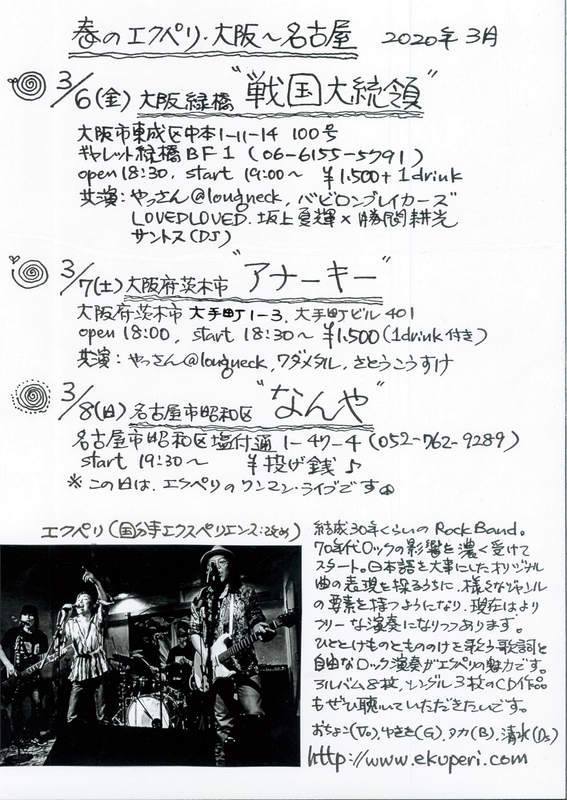 春のエクペリ・大阪〜名古屋 2020年3月
3/6(金) 大阪緑橋 "戦国大統領"
大阪市東成区中本1-11-14 100号
ギャレット緑橋BF1 (06-6155-5791)
open 18:30, start 19:00〜 ¥1,500+1drink
共演：やっさん@lougneck, バビロンブレイカーズ
LOVEDLOVED. 坂上夏輝×勝間耕光
サントス(DJ)
3/7(土) 大阪府茨木市 "アナーキー"
大阪府茨木市 大手町1-3, 大手町ビル401
open 18:00, start 18:30〜 ¥1,500(1drink付き)
共演：やっさん@lougneck, ワダメタル, さとうこうすけ
3/8(日) 名古屋市昭和区 "なんや"
名古屋市昭和区塩付通1-47-4 (052-762-9289)
start 19:30〜 ¥投げ銭♪
※この日は、エクペリのワンマン・ライブです
エクペリ(国分寺エクスペリエンス:改め)
結成30年くらいのRock Band。
70年代ロックの影響を濃く受けて
スタート。日本語を大事にしたオリジナル
曲の表現を探るうちに、様々なジャンル
の要素を持つようになり、現在はより
フリーな演奏になりつつあります。
ひととけものともののけを歌う歌詞と
自由なロック演奏がエクペリの魅力です。
アルバム8枚, シングル3枚のCD作品
もぜひ聴いていただきたいです。
おちょこ(Vo), ゆきを(G), タカ(B), 清水(Ds)
http://www.ekuperi.com